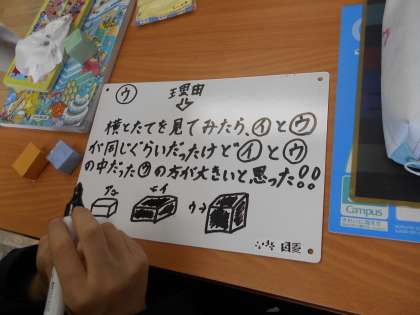 ウ 理由
横とたてを見てみたら、イとウ
が同じぐらいだったけどイとウ
の中だったウの方が大きいと思った!!
ア→ →イ ウ→
Campus